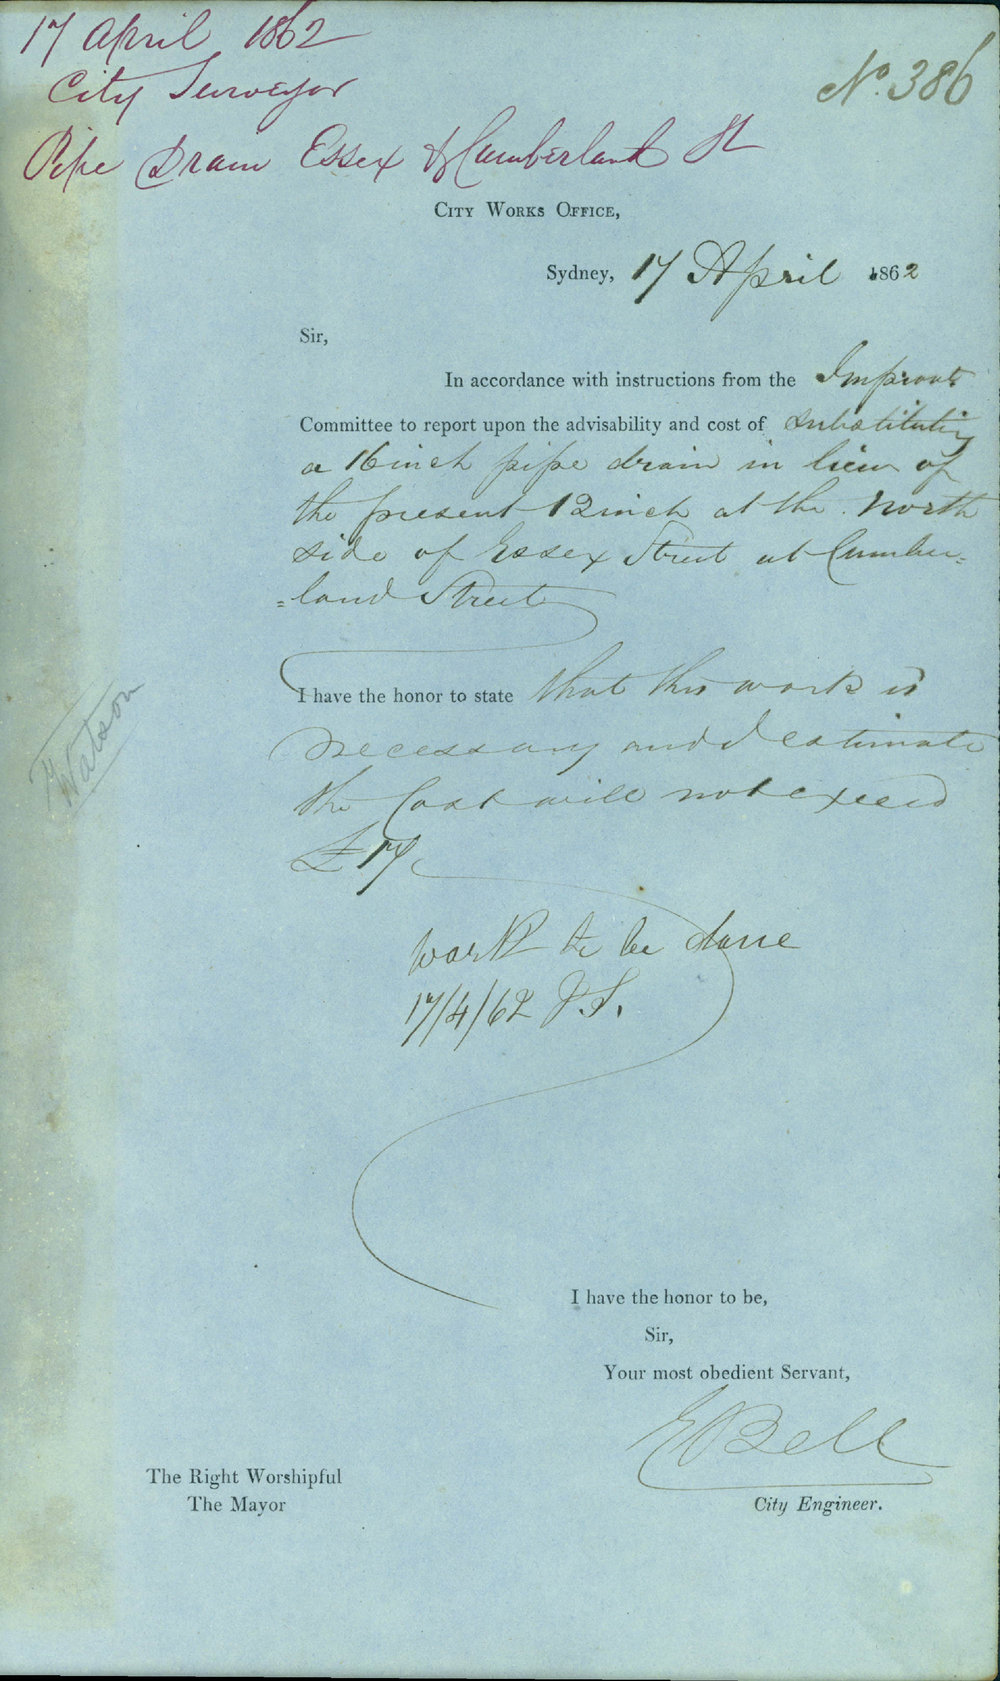 17 April 1862
City Surveyor
No. 386
Pipe Drain Essex & Cumberland St
City Works Office,
Sydney, 17 April 1862
Sir,
In accordance with instructions from the Improvts
Committee to report upon the advisability and cost of substituting
a 16 inch pipe drain in lieu of
the present 12 inch at the North
side of Essex Street at Cumber=
=land Street
I have the honor to state that this work is
necessary and I estimate
the Cost will not exceed
£17
Watson
Work to be done
17/4/62 J.S.
I have the honor to be,
Sir,
Your most obedient Servant,
E Bell
City Engineer.
The Right Worshipful
The Mayor